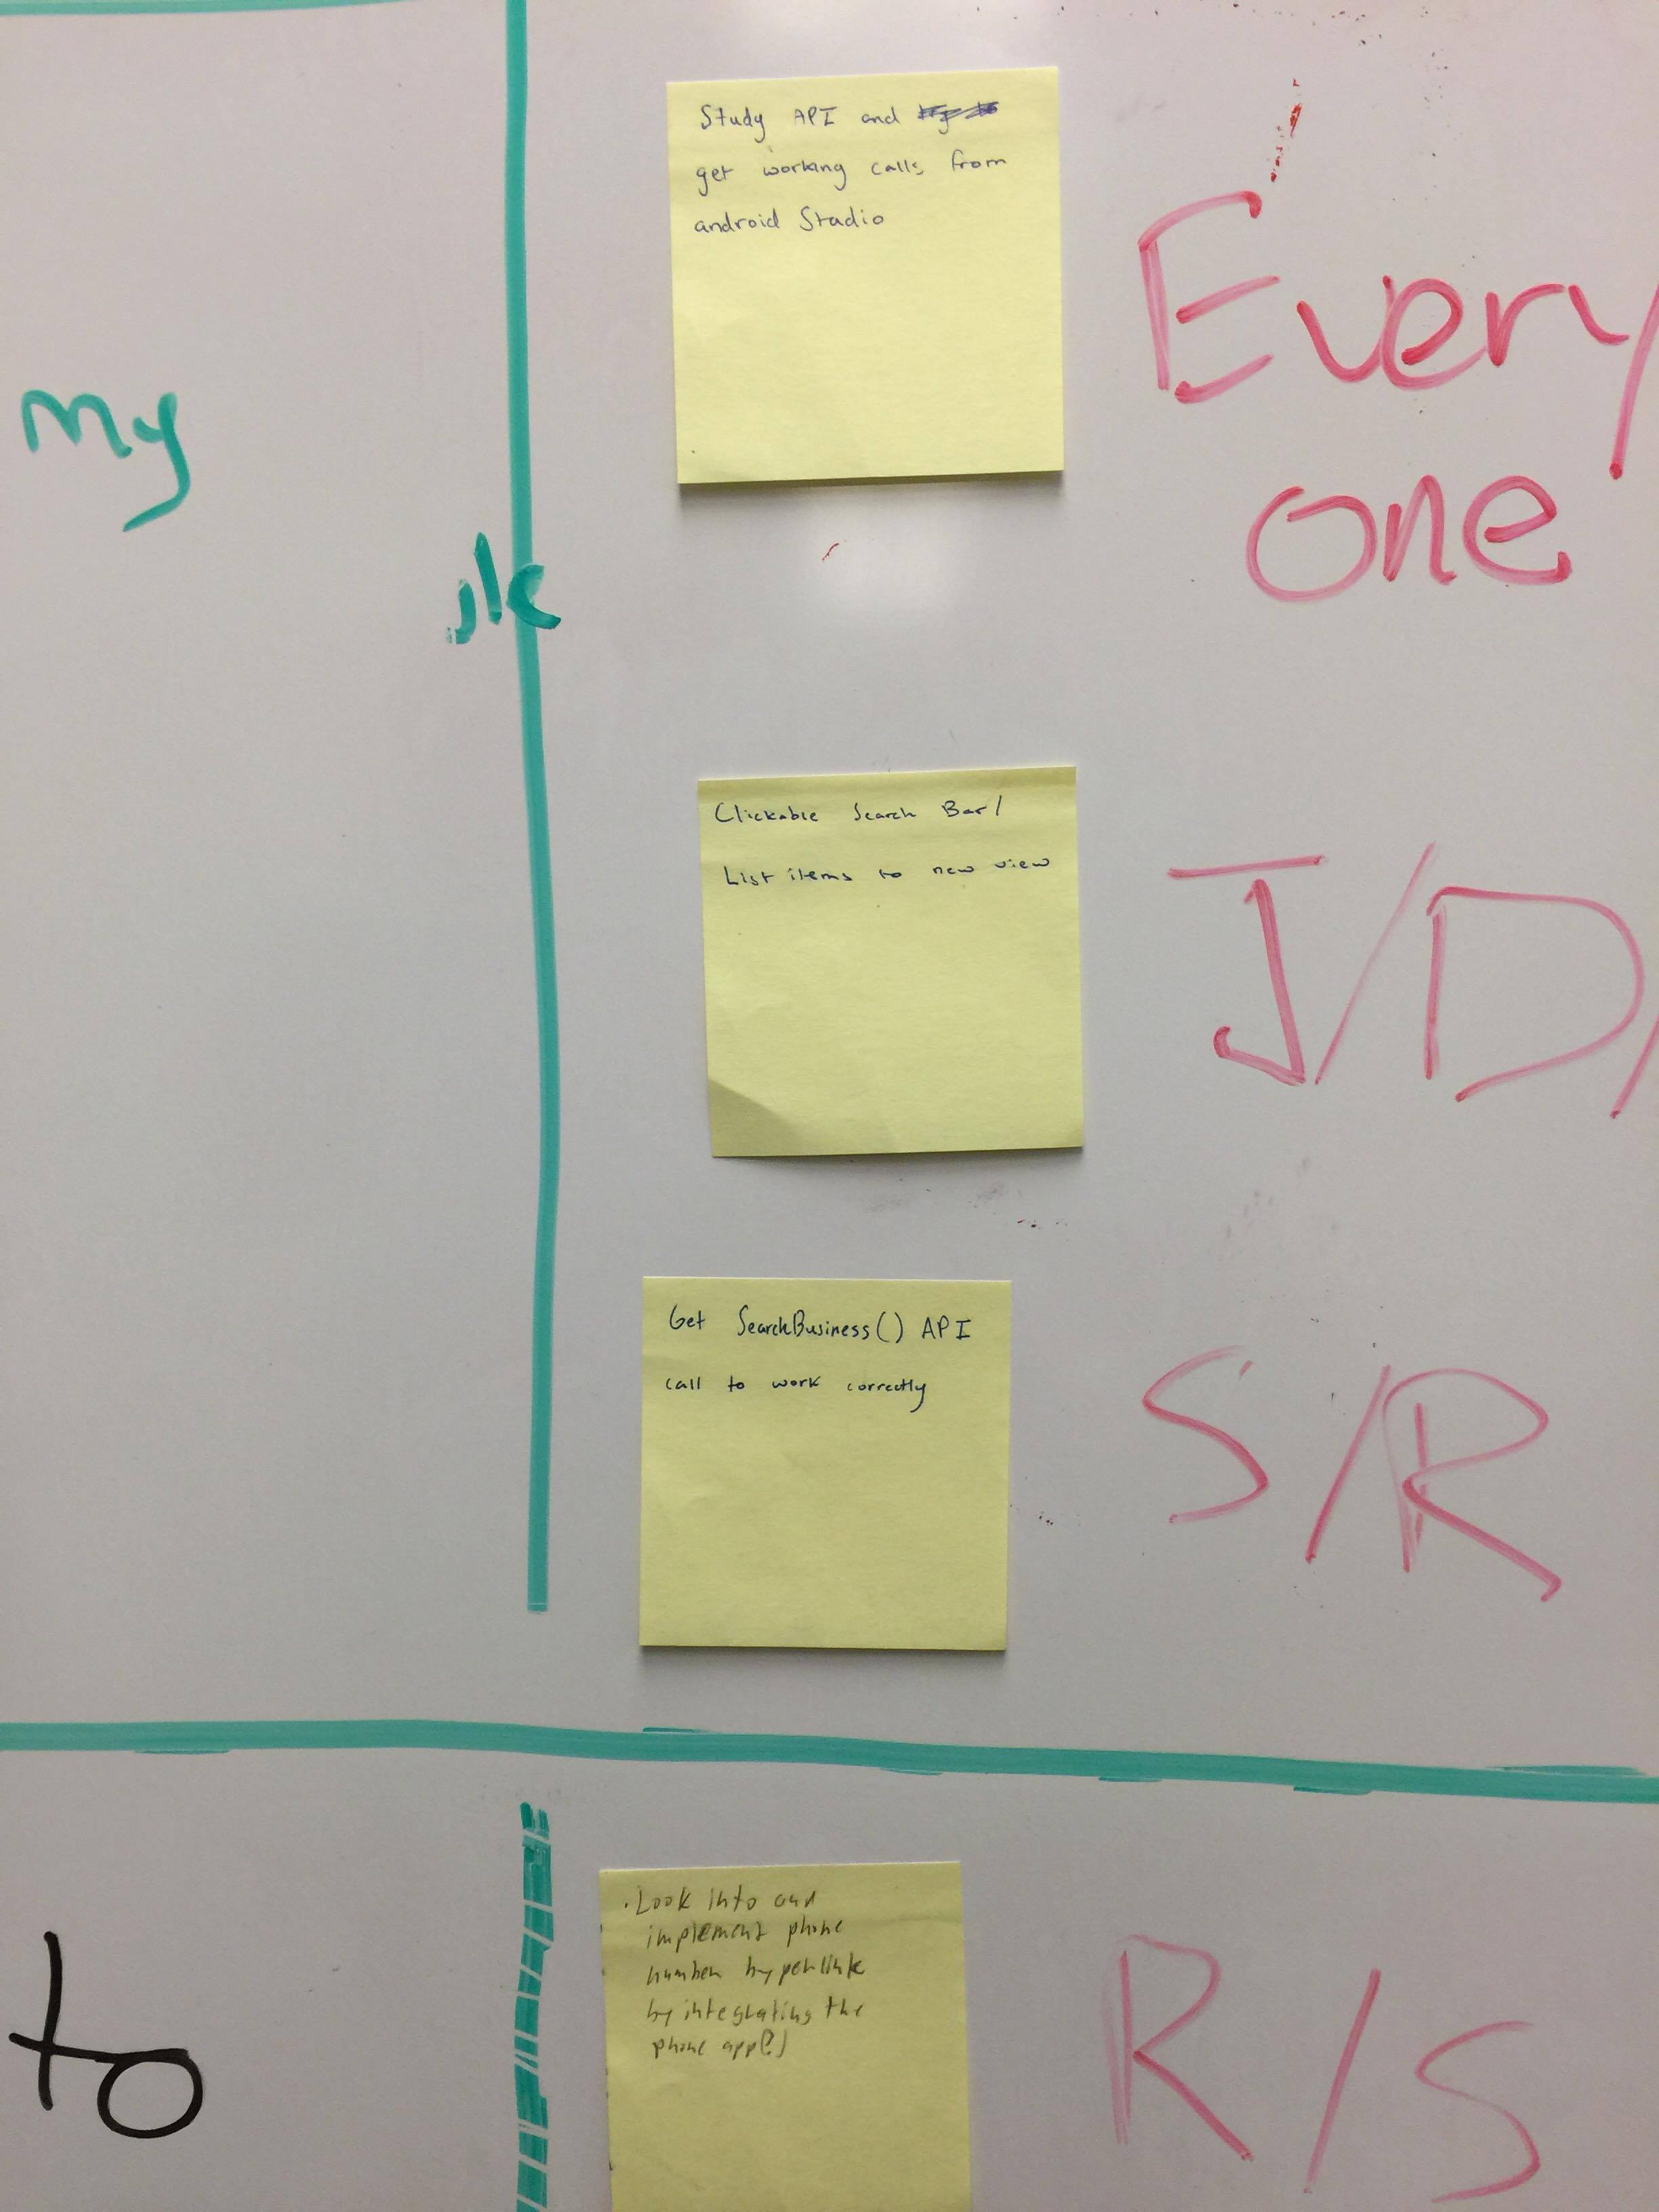 Study API and
get working calls from
android Studio
Every
one
my
Clickable Search Bar/
List items to new view
J/D/
Get SearchBusiness() API
call to work correctly
S/R
to
. Look into and
implement phone
number hyperlink
by integrating the
phone app(?)
R/S